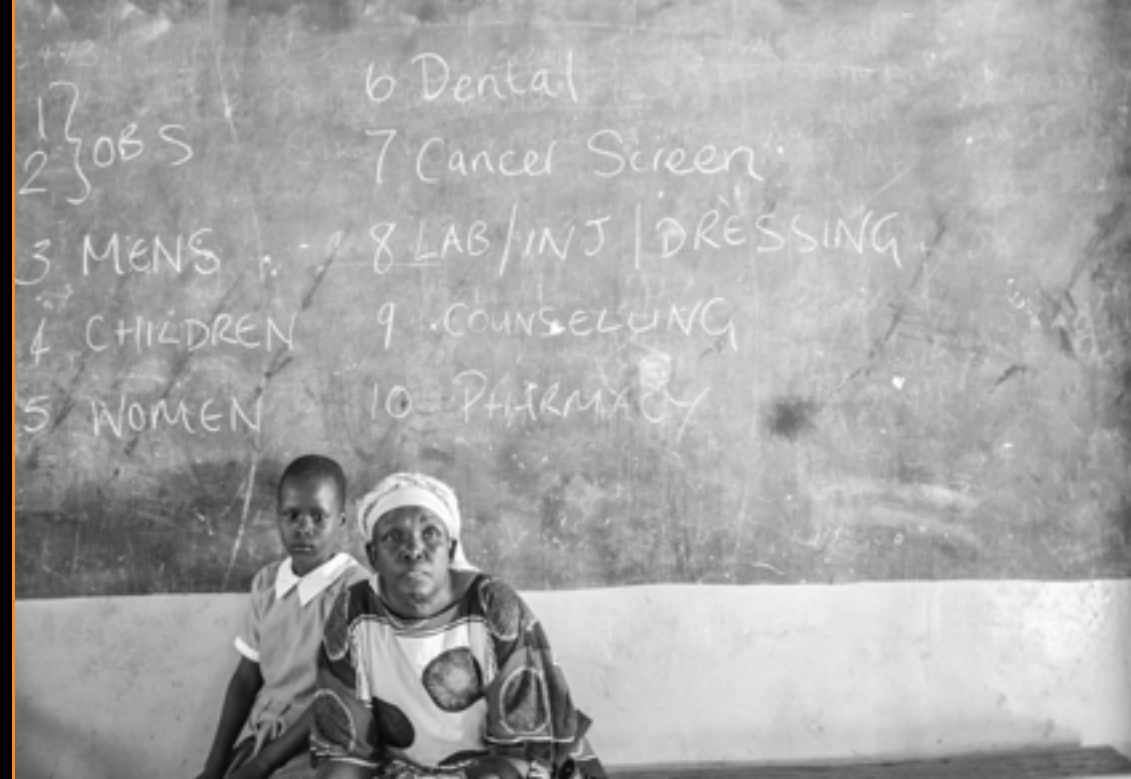 1 } OBS
2
3 MENS
4 CHILDREN
5 WOMEN
6 Dental
7 Cancer Screen
8 LAB/INJ/DRESSING
9 COUNSELLING
10 PHARMACY